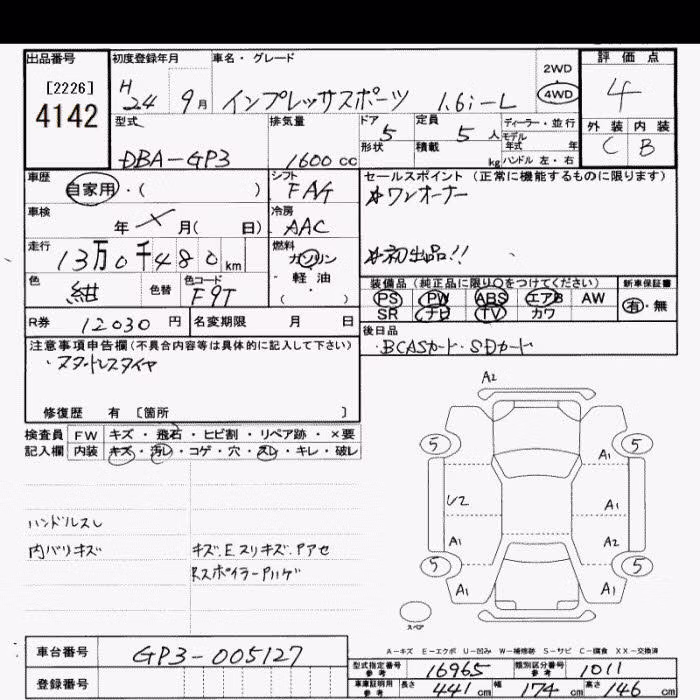 出品番号
[2226]
4142
初度登録年月
H 24 9月
車名・グレード
インプレッサスポーツ 1.6i-L
2WD
4WD
評価点
4
外装 内装
C B
型式
DBA-GP3
排気量
1600cc
ドア 5
形状
定員 5人
積載 kg
ディーラー・並行
モデル年式 年
ハンドル 左・右
車歴
自家用・( )
シフト
FAT
セールスポイント(正常に機能するものに限ります)
☆ワンオーナー
☆初出品!!
車検
年 月( 日)
冷房
AAC
走行
13万0千480km
燃料
ガソリン
軽油
( ・ )
色
紺
色替
色コード
F9T
装備品(純正品に限り○をつけてください)
PS PW ABS エアB AW
SR ナビ TV カワ
新車保証書
有・無
R券 12030円
名変期限 月 日
後日品
・BCASカード・SDカード
注意事項申告欄(不具合内容等は具体的に記入して下さい)
・スタットレスタイヤ
修復歴 有 [箇所 ]
検査員記入欄
FW キズ・飛石・ヒビ割・リペア跡・×要
内装 キズ・汚レ・コゲ・穴・スレ・キレ・破レ
ハンドルスレ
内バリキズ
キズ.E.スリキズ.Pアセ
RスポイラーPハゲ
A2
5 5
A1
U2 A1
A1 A2
5 5
A1 A1
スペア
A-キズ E-エクボ U-凹み W-補修跡 S-サビ C-腐食 XX-交換済
車台番号
GP3-005127
登録番号
型式指定番号参考 16965
類別区分番号参考 1011
車庫証明用参考 長さ 441cm 幅 174cm 高さ 146cm